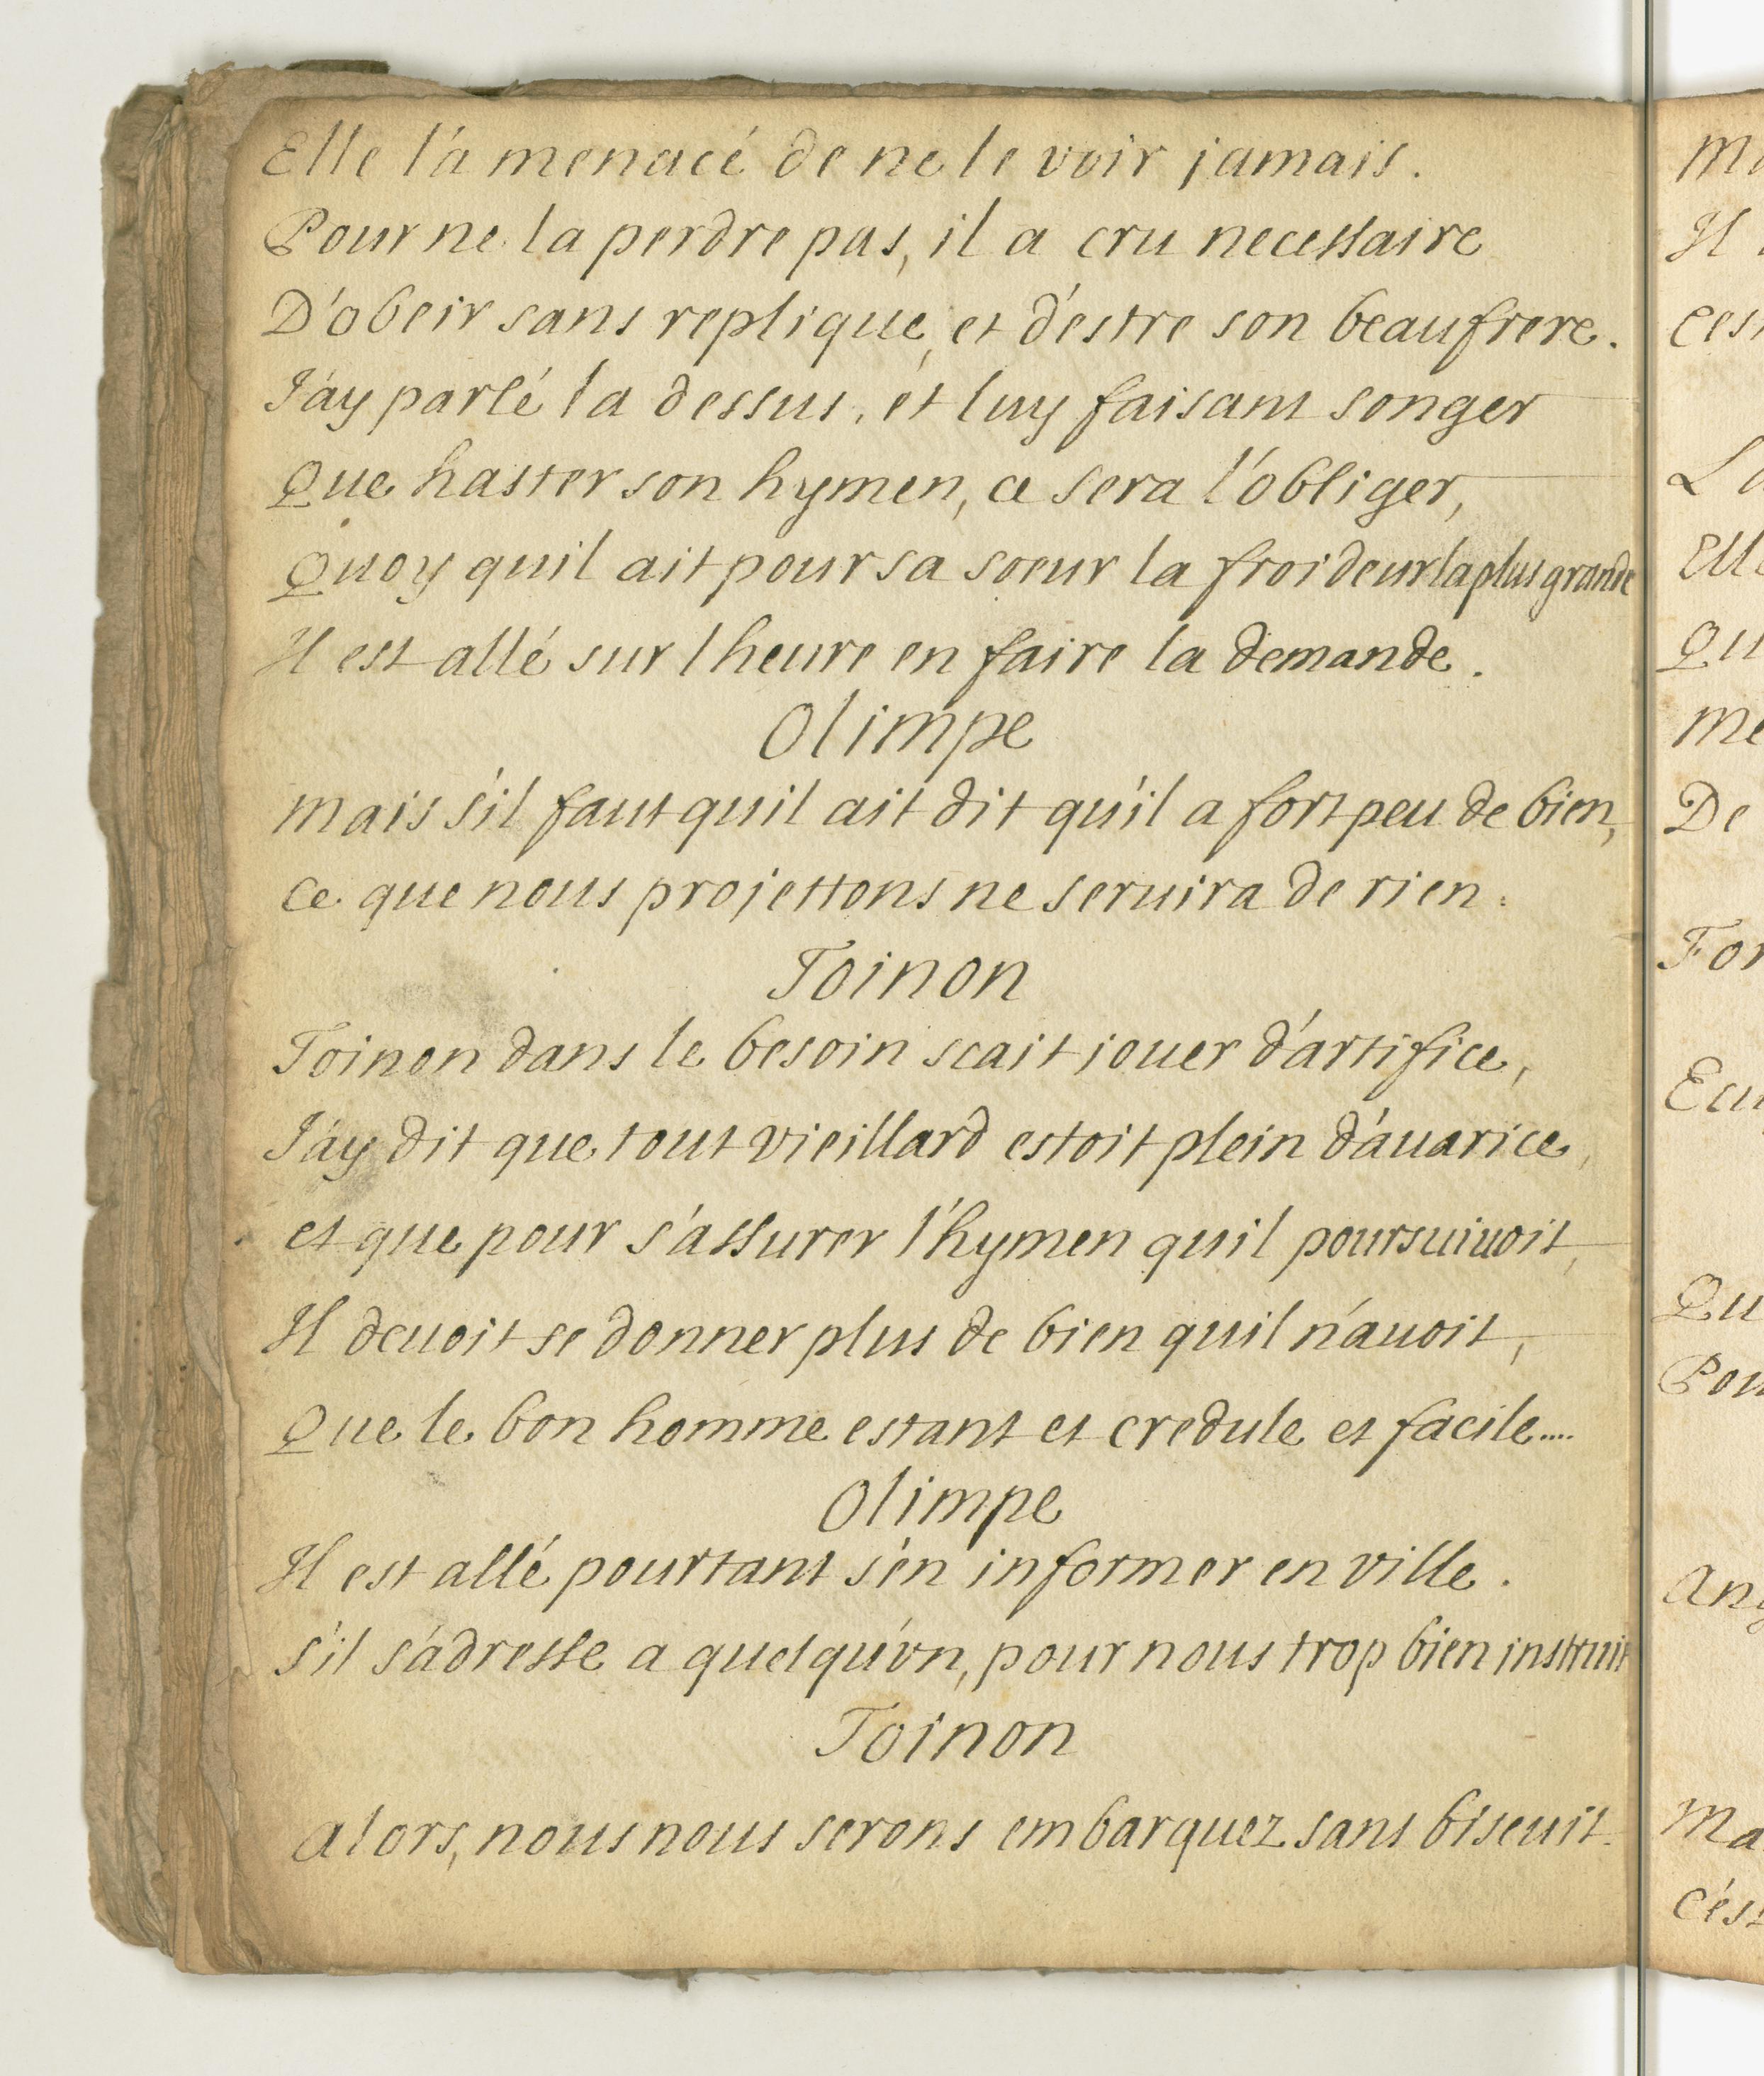 Elle l'a menacé de ne le voir jamais.
Pour ne la perdre pas, il a cru necessaire
D'obeir sans replique, et d'estre son beaufrere.
J'ay parlé la dessus, et luy faisant songer
Que haster son hymen, ce sera l'obliger,
Quoy quil ait pour sa soeur la froideur la plus grande
Il est allé sur lheure en faire la demande.
Olimpe
mais s'il faut quil ait dit qu'il a fort peu de bien,
ce que nous projettons ne seruira de rien.
Toinon
Toinon dans le besoin scait jouer d'artifice,
J'ay dit que tout vieillard estoit plein d'auarice,
et que pour s'assurer l'hymen quil poursuiuoit,
Il deuoit se donner plus de bien quil n'auoit,
Que le bon homme estant et credule et facile....
Olimpe
Il est allé pourtant s'en informer en ville.
s'il s'adresse a quelqu'vn, pour nous trop bien instruit
Toinon
alors, nous nous serons embarquez sans biscuit.